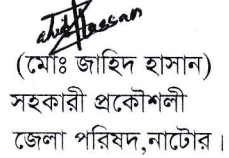 (মোঃ জাহিদ হাসান)
সহকারী প্রকৌশলী
জেলা পরিষদ,নাটোর।